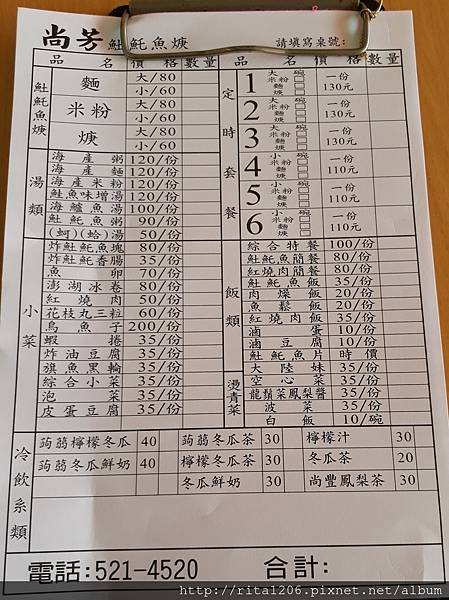 尚芳 魠魠魚焿 請填寫桌號:
品名 價格 數量 品名 價格 數量
魠魠魚焿
麵 大/80
小/60
米粉 大/80
小/60
焿 大/80
小/60
湯類
海產粥 120/份
海產麵 120/份
海產米粉 120/份
鮭魚味增湯 120/份
海鱺魚湯 100/份
魠魠魚粥 90/份
(蚵)(蛤)湯 50/份
小菜
炸魠魠魚塊 80/份
炸魠魠香腸 35/份
魚卵 70/份
澎湖冰卷 80/份
紅燒肉 50/份
花枝丸三粒 60/份
烏魚子 200/份
蝦捲 35/份
炸油豆腐 35/份
旗魚黑輪 35/份
綜合小菜 35/份
泡菜 35/份
皮蛋豆腐 35/份
定時套餐
1 大碗□ 米粉□ 麵□ 焿□ 一份 130元
2 大碗□ 米粉□ 麵□ 焿□ 一份 130元
3 大碗□ 米粉□ 麵□ 焿□ 一份 130元
4 小碗□ 米粉□ 麵□ 焿□ 一份 110元
5 小碗□ 米粉□ 麵□ 焿□ 一份 110元
6 小碗□ 米粉□ 麵□ 焿□ 一份 110元
飯類
綜合特餐 100/份
魠魠魚簡餐 80/份
紅燒肉簡餐 80/份
魠魠魚飯 35/份
肉燥飯 20/份
魚鬆飯 20/份
紅燒肉飯 35/份
滷蛋 10/份
滷豆腐 10/份
魠魠魚片 時價
燙青菜
大陸妹 35/份
空心菜 35/份
龍鬚菜鳳梨醬 35/份
菠菜 35/份
白飯 10/碗
冷飲系類
蒟蒻檸檬冬瓜 40 蒟蒻冬瓜茶 30 檸檬汁 30
蒟蒻冬瓜鮮奶 40 檸檬冬瓜茶 30 冬瓜茶 20
冬瓜鮮奶 30 尚豐鳳梨茶 30
電話:521-4520 合計:
http://rita1206.pixnet.net/album